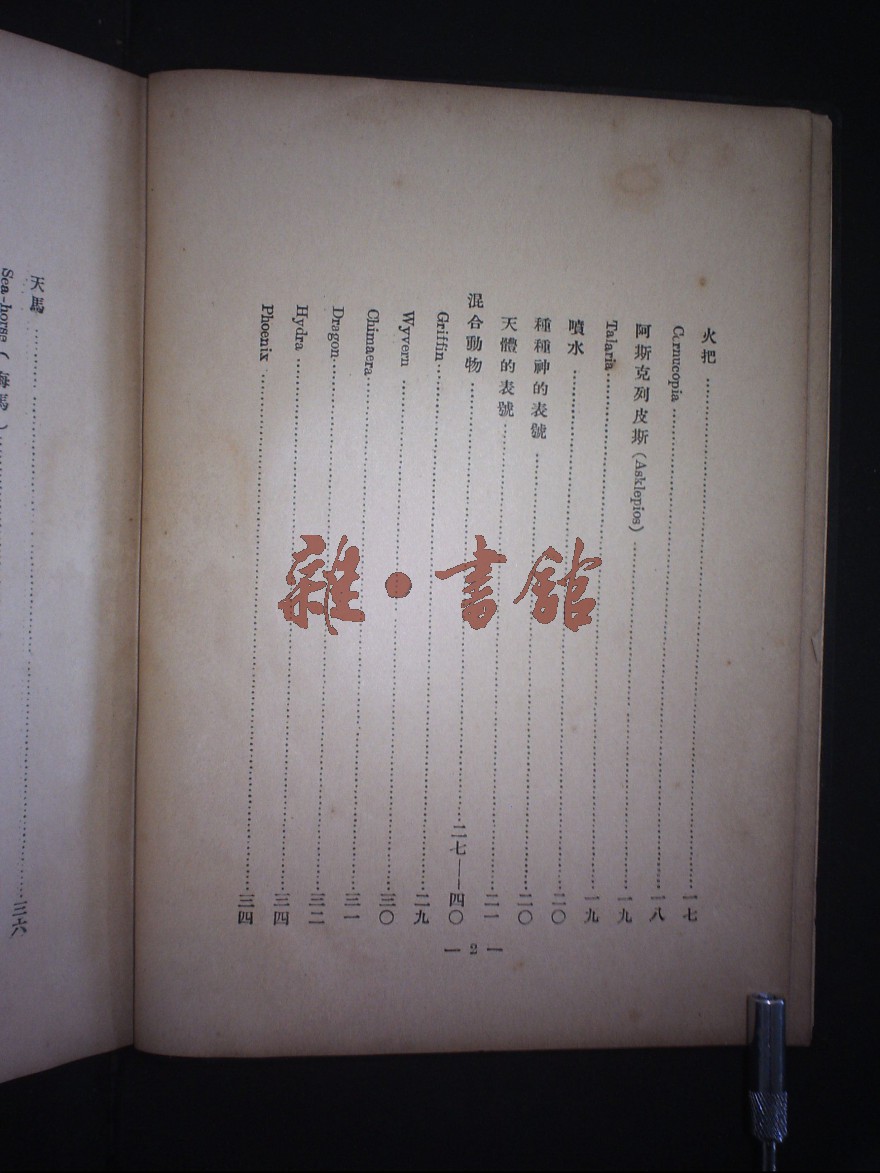 火把……一七
Cornucopia……一八
阿斯克列皮斯(Asklepios)……一九
Talaria……一九
噴水……二〇
種種神的表號……二〇
天體的表號……二一
混合動物……二七——四〇
Griffin……二九
Wyvern……三〇
Chimaera……三一
Dragon……三二
Hydra……三四
Phoenix……三四
— 2 —
天馬……三六
Sea-horse(海馬)……
雜·書館